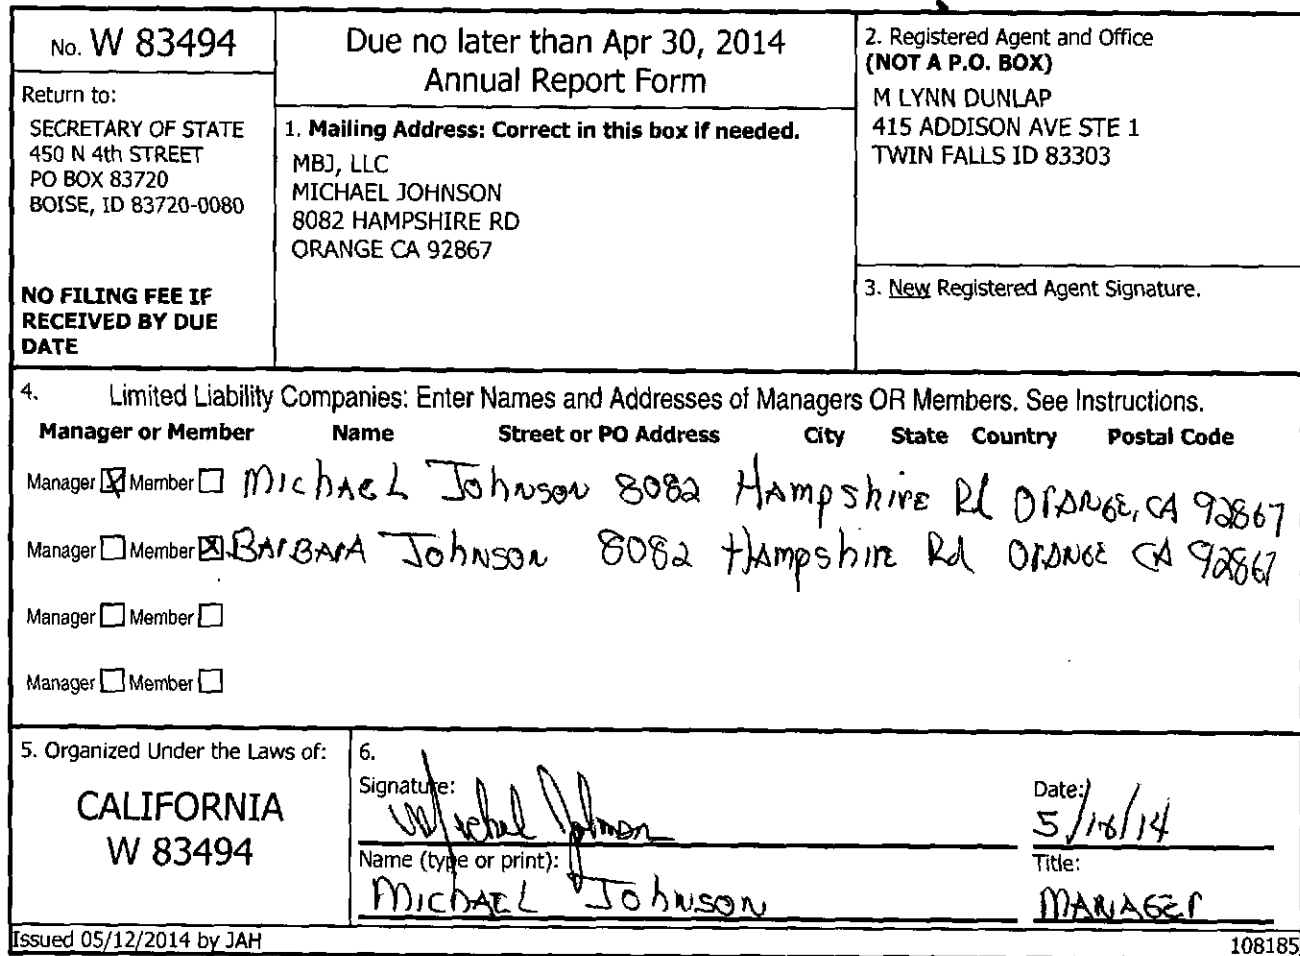 No. W 83494
Return to:
SECRETARY OF STATE
450 N 4th STREET
PO BOX 83720
BOISE, ID 83720-0080
NO FILING FEE IF
RECEIVED BY DUE
DATE
Due no later than Apr 30, 2014
Annual Report Form
1. Mailing Address: Correct in this box if needed.
MBJ, LLC
MICHAEL JOHNSON
8082 HAMPSHIRE RD
ORANGE CA 92867
2. Registered Agent and Office
(NOT A P.O. BOX)
M LYNN DUNLAP
415 ADDISON AVE STE 1
TWIN FALLS ID 83303
3. New Registered Agent Signature.
4. Limited Liability Companies: Enter Names and Addresses of Managers OR Members. See Instructions.
Manager or Member Name Street or PO Address City State Country Postal Code
Manager Member Michael Johnson 8082 Hampshire Rd Orange, CA 92867
Manager Member Barbara Johnson 8082 Hampshire Rd Orange CA 92867
Manager Member
Manager Member
5. Organized Under the Laws of:
CALIFORNIA
W 83494
6.
Signature: Michael Johnson
Date: 5/18/14
Name (type or print): Michael Johnson
Title: MANAGER
Issued 05/12/2014 by JAH
108185